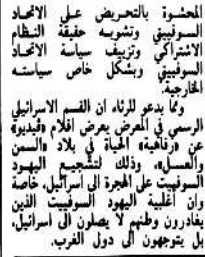 المحشوة بالتحريض على الاتحاد
السوفييتي وتشويه حقيقة النظام
الاشتراكي وتزييف سياسة الاتحاد
السوفييتي وبشكل خاص سياسته
الخارجية.
ومما يدعو للرثاء ان القسم الاسرائيلي
الرسمي في المعرض يعرض افلام «فيديو»
عن «رفاهية» الحياة في بلاد «السمن
والعسل»، وذلك لتشجيع اليهود
السوفييت على الهجرة الى اسرائيل، خاصة
وان اغلبية اليهود السوفييت الذين
يغادرون وطنهم لا يصلون الى اسرائيل،
بل يتوجهون الى دول الغرب.